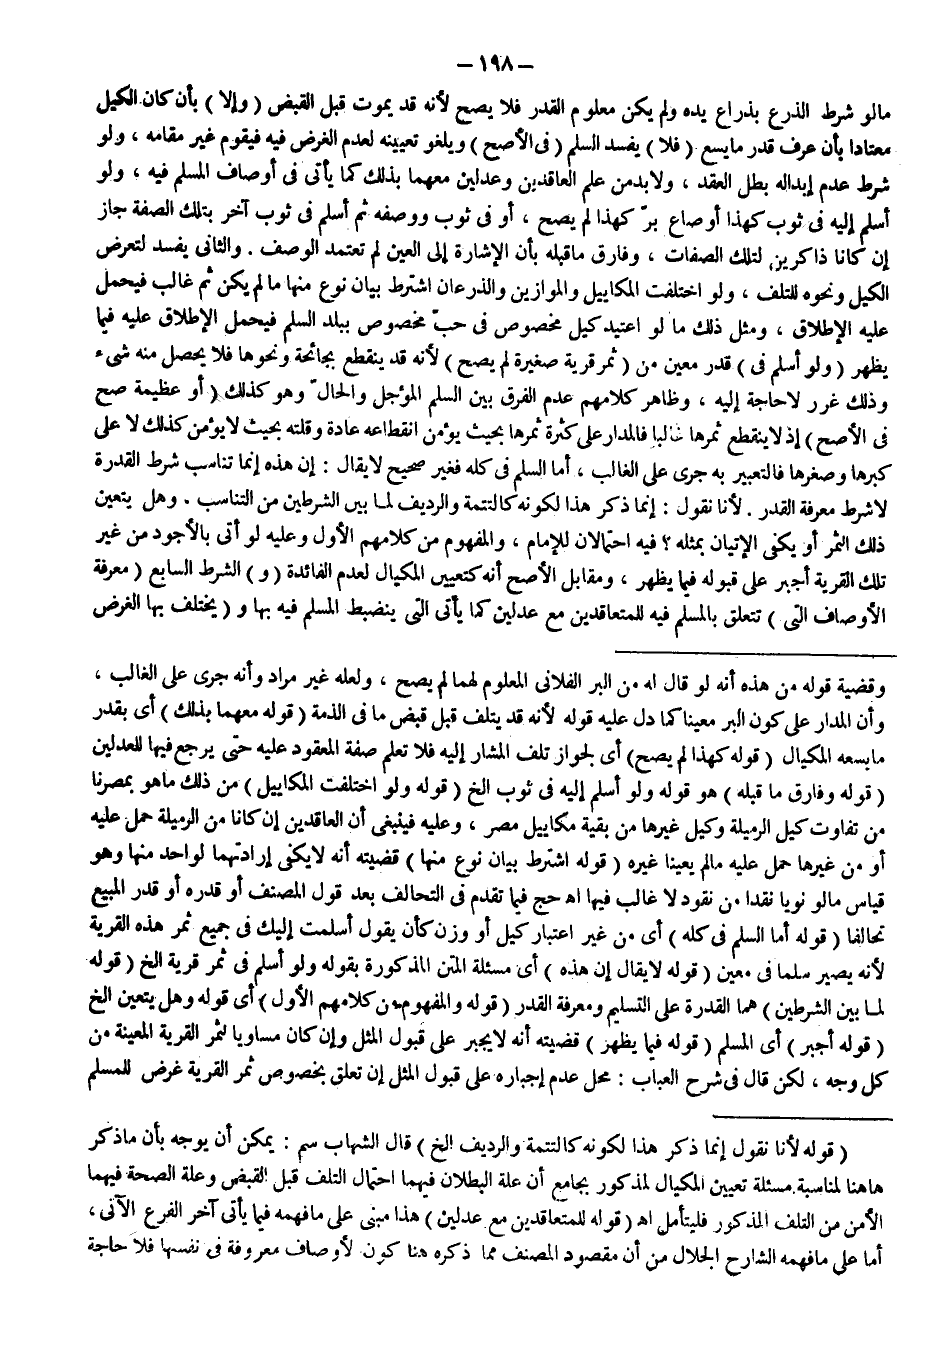 – ١٩٨ –
مالو شرط الذرع بذراع يده ولم يكن معلوم القدر فلا يصح لأنه قد يموت قبل القبض ( وإلا ) بأن كان الكيل
معتادا بأن عرف قدر مايسع ( فلا ) يفسد السلم ( فى الأصح ) ويلغو تعيينه لعدم الغرض فيه فيقوم غير مقامه ، ولو
شرط عدم إبداله بطل العقد ، ولابدمن علم العاقدين وعدلين معهما بذلك كما يأتى فى أوصاف المسلم فيه ، ولو
أسلم إليه فى ثوب كهذا أو صاع برّ كهذا لم يصح ، أو فى ثوب ووصفه ثم أسلم فى ثوب آخر بتلك الصفة جاز
إن كانا ذاكرين لتلك الصفات ، وفارق ماقبله بأن الإشارة إلى العين لم تعتمد الوصف . والثانى يفسد لتعرض
الكيل ونحوه للتلف ، ولو اختلفت المكاييل والموازين والذرعان اشترط بيان نوع منها ما لم يكن ثم غالب فيحمل
عليه الإطلاق ، ومثل ذلك ما لو اعتيد كيل مخصوص فى حبّ مخصوص ببلد السلم فيحمل الإطلاق عليه فيما
يظهر ( ولو أسلم فى ) قدر معين من ( ثمر قرية صغيرة لم يصح ) لأنه قد ينقطع بجائحة ونحوها فلا يحصل منه شىء
وذلك غرر لاحاجة إليه ، وظاهر كلامهم عدم الفرق بين السلم المؤجل والحالّ وهو كذلك ( أو عظيمة صح
فى الأصح ) إذ لاينقطع ثمرها غالبا فالمدار على كثرة ثمرها بحيث يؤمن انقطاعه عادة وقلته بحيث لايؤمن كذلك لا على
كبرها وصغرها فالتعبير به جرى على الغالب ، أما السلم فى كله فغير صحيح لايقال : إن هذه إنما تناسب شرط القدرة
لاشرط معرفة القدر . لأنا نقول : إنما ذكر هذا لكونه كالتتمة والرديف لما بين الشرطين من التناسب . وهل يتعين
ذلك الثمر أو يكفى الإتيان بمثله ؟ فيه احتمالان للإمام ، والمفهوم من كلامهم الأول وعليه لو أتى بالأجود من غير
تلك القرية أجبر على قبوله فيما يظهر ، ومقابل الأصح أنه كتعيين المكيال لعدم الفائدة ( و ) الشرط السابع ( معرفة
الأوصاف التى ) تتعلق بالمسلم فيه للمتعاقدين مع عدلين كما يأتى التى ينضبط المسلم فيه بها و ( يختلف بها الغرض
وقضية قوله من هذه أنه لو قال له من البر الفلانى المعلوم لهما لم يصح ، ولعله غير مراد وأنه جرى على الغالب ،
وأن المدار على كون البر معينا كما دل عليه قوله لأنه قد يتلف قبل قبض ما فى الذمة ( قوله معهما بذلك ) أى بقدر
مايسعه المكيال ( قوله كهذا لم يصح ) أى لجواز تلف المشار إليه فلا تعلم صفة المعقود عليه حتى يرجع فيها للعدلين
( قوله وفارق ما قبله ) هو قوله ولو أسلم إليه فى ثوب الخ ( قوله ولو اختلفت المكاييل ) من ذلك ماهو بمصرنا
من تفاوت كيل الرميلة وكيل غيرها من بقية مكاييل مصر ، وعليه فينبغى أن العاقدين إن كانا من الرميلة حمل عليه
أو من غيرها حمل عليه مالم يعينا غيره ( قوله اشترط بيان نوع منها ) قضيته أنه لايكفى إرادتهما لواحد منها وهو
قياس مالو نويا نقدا من نقود لا غالب فيها اه حج فيما تقدم فى التحالف بعد قول المصنف أو قدره أو قدر المبيع
تحالفا ( قوله أما السلم فى كله ) أى من غير اعتبار كيل أو وزن كأن يقول أسلمت إليك فى جميع ثمر هذه القرية
لأنه يصير سلما فى معين ( قوله لايقال إن هذه ) أى مسئلة المتن المذكورة بقوله ولو أسلم فى ثمر قرية الخ ( قوله
لما بين الشرطين ) هما القدرة على التسليم ومعرفة القدر ( قوله والمفهوم من كلامهم الأول ) أى قوله وهل يتعين الخ
( قوله أجبر ) أى المسلم ( قوله فيما يظهر ) قضيته أنه لايجبر على قبول المثل وإن كان مساويا لثمر القرية المعينة من
كل وجه ، لكن قال فى شرح العباب : محل عدم إجباره على قبول المثل إن تعلق بخصوص ثمر القرية غرض للمسلم
( قوله لأنا نقول إنما ذكر هذا لكونه كالتتمة والرديف الخ ) قال الشهاب سم : يمكن أن يوجه بأن ماذكر
هاهنا لمناسبة مسئلة تعيين المكيال لمذكور بجامع أن علة البطلان فيهما احتمال التلف قبل القبض وعلة الصحة فيهما
الأمن من التلف المذكور فليتأمل اه ( قوله للمتعاقدين مع عدلين ) هذا مبنى على مافهمه فيما يأتى آخر الفرع الآتى ،
أما على مافهمه الشارح الجلال من أن مقصود المصنف مما ذكره هنا كون لأوصاف معروفة فى نفسها فلا حاجة